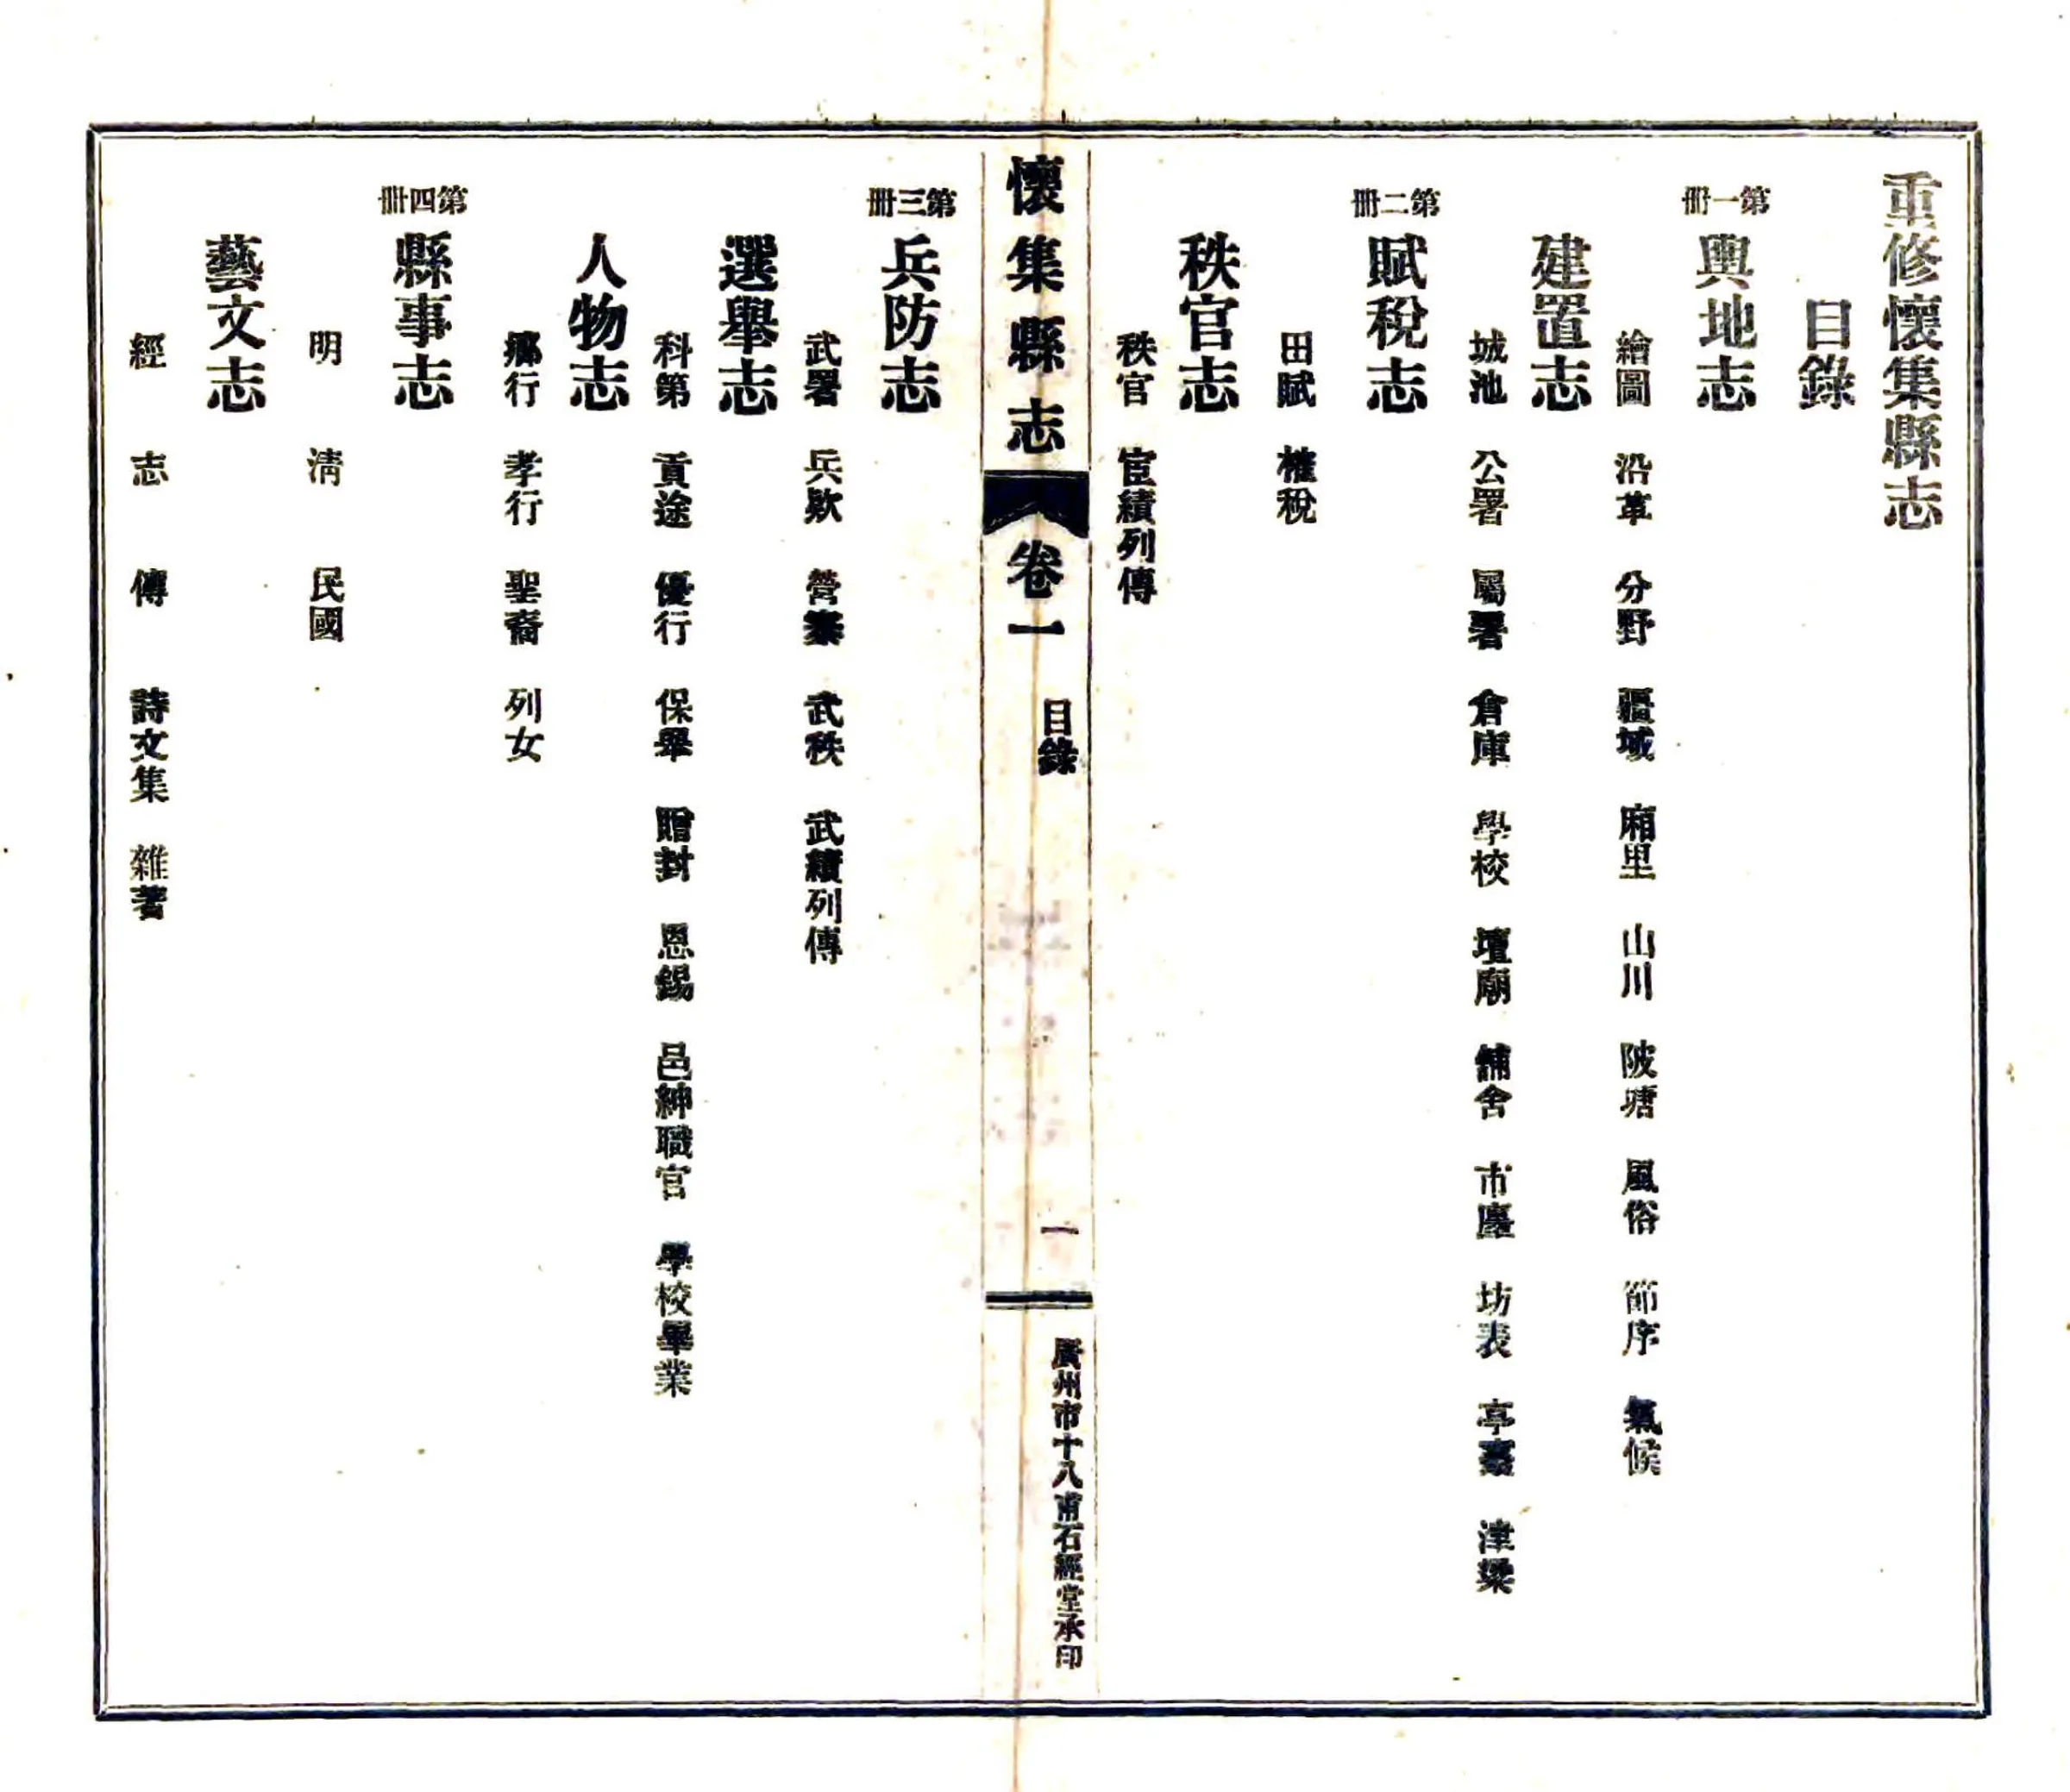 重修懷集縣志
目錄
第一冊
輿地志
繪圖 沿革 分野 疆域 廂里 山川 陂塘 風俗 節序 氣候
建置志
城池 公署 屬署 倉庫 學校 壇廟 舖舍 市廛 坊表 亭臺 津梁
第二冊
賦稅志
田賦 榷稅
秩官志
秩官 宦績列傳
懷集縣志
卷一
目錄
一
廣州市十八甫石經堂承印
第三冊
兵防志
武署 兵欵 營寨 武秩 武績列傳
選舉志
科第 貢途 優行 保舉 贈封 恩錫 邑紳職官 學校畢業
人物志
鄉行 孝行 聖裔 列女
第四冊
縣事志
明 清 民國
藝文志
經 志 傳 詩文集 雜著